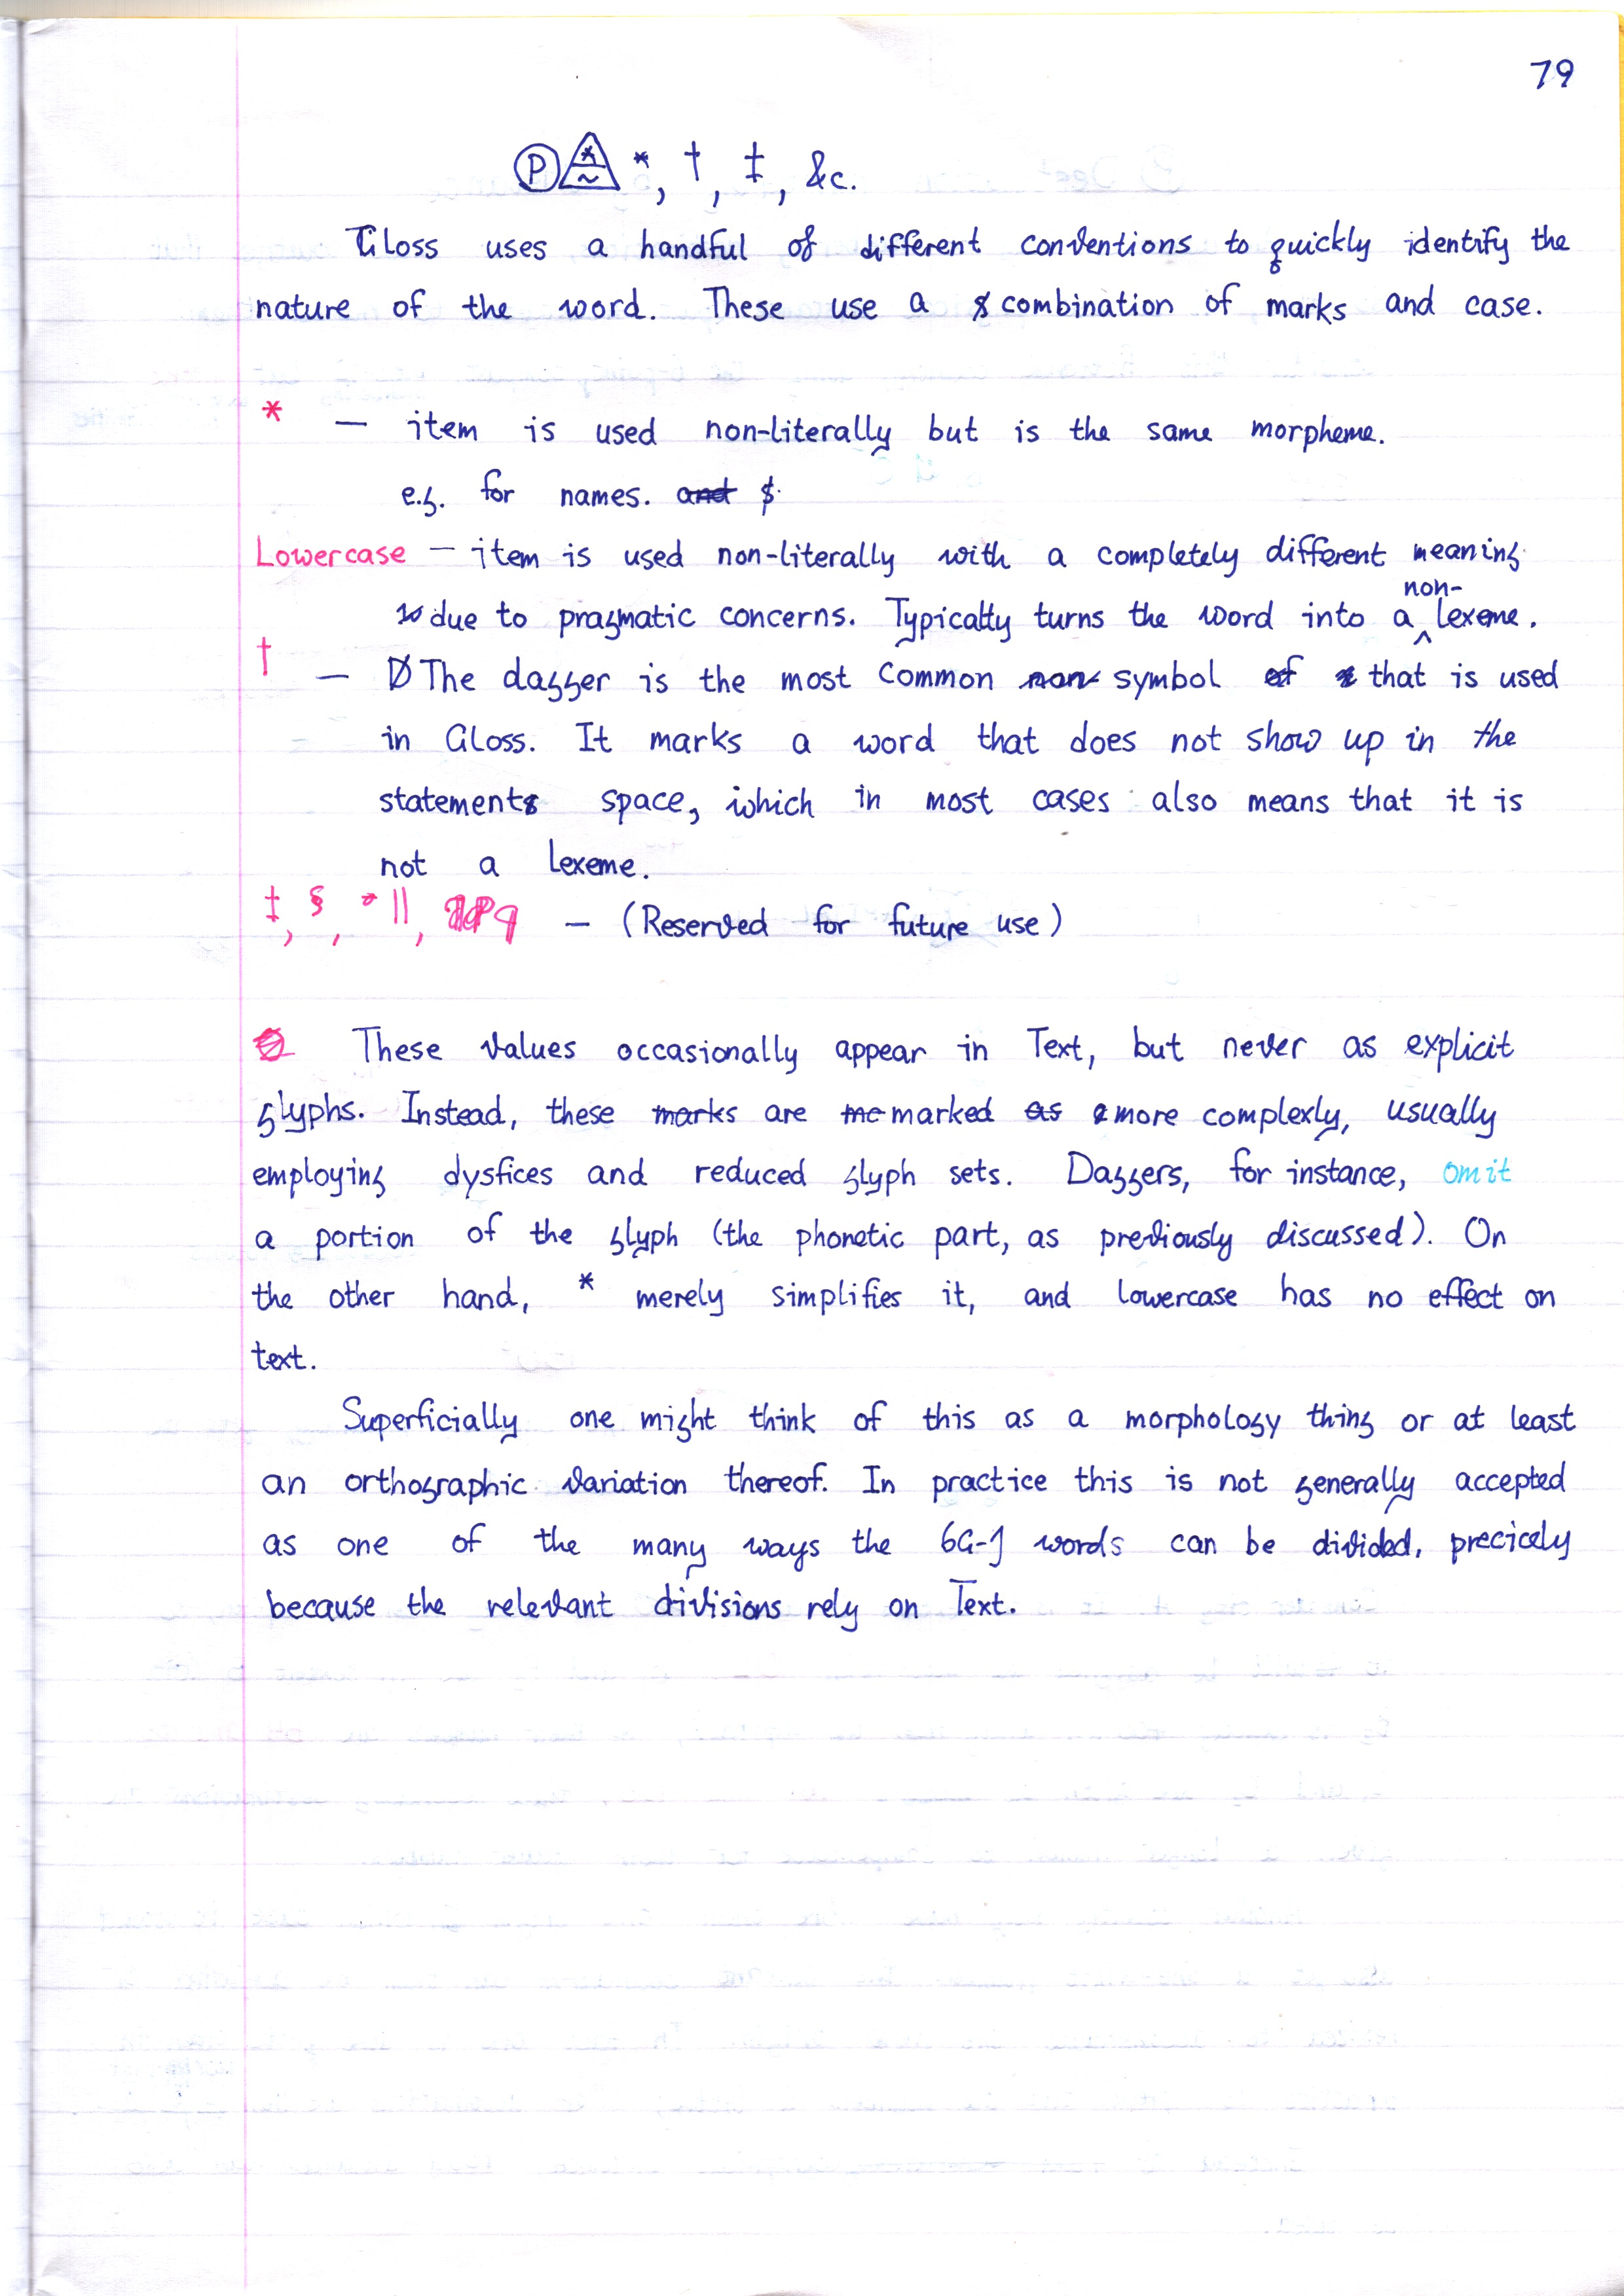 79
Ⓟ *, †, ‡, &c.
Gloss uses a handful of different conventions to quickly identify the
nature of the word. These use a combination of marks and case.
* — item is used non-literally but is the same morpheme.
e.g. for names. and
Lowercase — item is used non-literally with a completely different meaning
due to pragmatic concerns. Typically turns the word into a non-lexeme.
† — The dagger is the most common non symbol of that is used
in Gloss. It marks a word that does not show up in the
statement space, which in most cases also means that it is
not a lexeme.
‡, §, ||, ¶ — (Reserved for future use)
These values occasionally appear in Text, but never as explicit
glyphs. Instead, these marks are me marked as more complexly, usually
employing dysfices and reduced glyph sets. Daggers, for instance, omit
a portion of the glyph (the phonetic part, as previously discussed). On
the other hand, * merely simplifies it, and lowercase has no effect on
text.
Superficially one might think of this as a morphology thing or at least
an orthographic variation thereof. In practice this is not generally accepted
as one of the many ways the words can be divided, precicely
because the relevant divisions rely on Text.